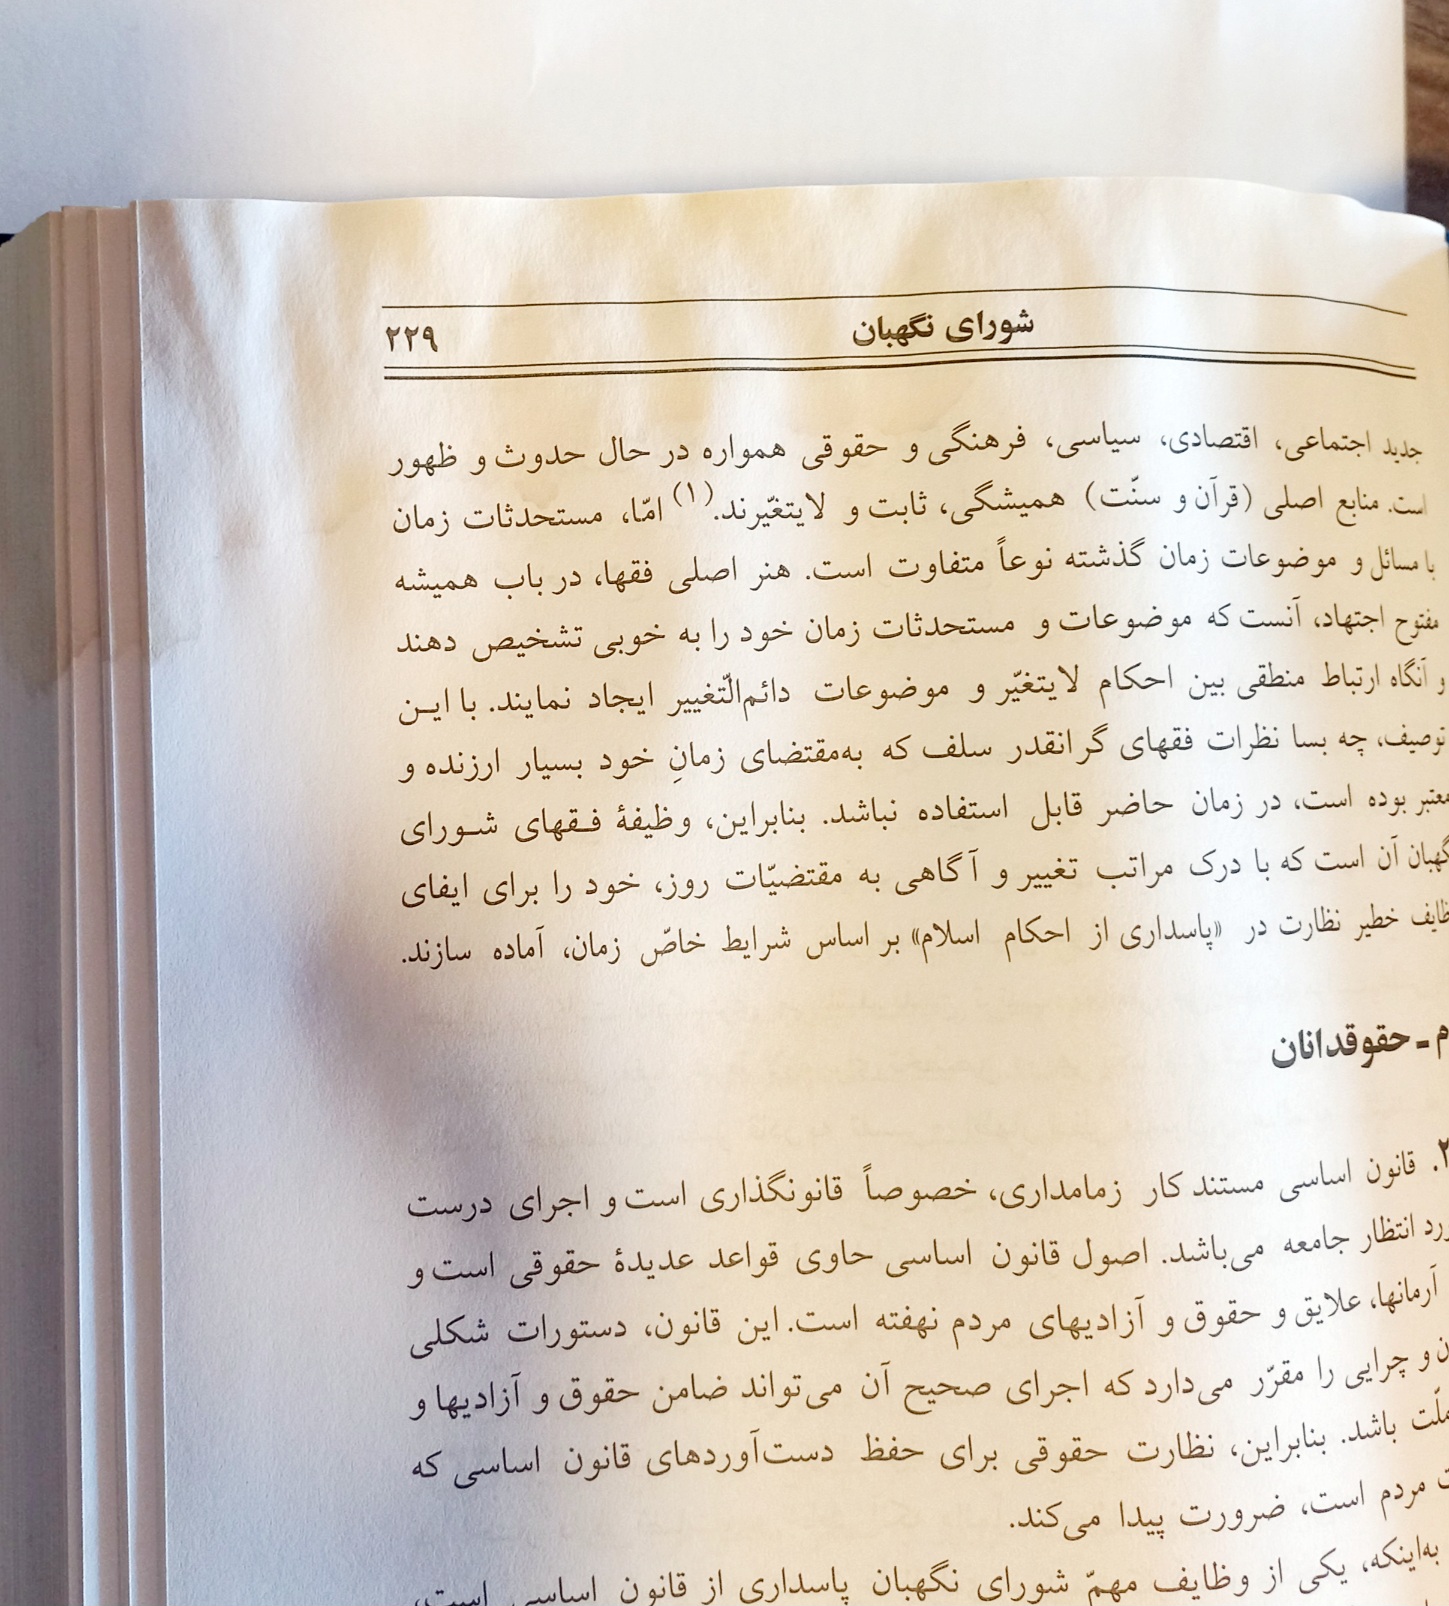 شورای نگهبان ۲۲۹
جدید اجتماعی، اقتصادی، سیاسی، فرهنگی و حقوقی همواره در حال حدوث و ظهور
است. منابع اصلی (قرآن و سنّت) همیشگی، ثابت و لایتغیّرند.(۱) امّا، مستحدثات زمان
با مسائل و موضوعات زمان گذشته نوعاً متفاوت است. هنر اصلی فقها، در باب همیشه
مفتوح اجتهاد، آنست که موضوعات و مستحدثات زمان خود را به خوبی تشخیص دهند
و آنگاه ارتباط منطقی بین احکام لایتغیّر و موضوعات دائم‌الّتغییر ایجاد نمایند. با این
توصیف، چه بسا نظرات فقهای گرانقدر سلف که به‌مقتضای زمانِ خود بسیار ارزنده و
معتبر بوده است، در زمان حاضر قابل استفاده نباشد. بنابراین، وظیفهٔ فقهای شورای
آن است که با درک مراتب تغییر و آگاهی به مقتضیّات روز، خود را برای ایفای
خطیر نظارت در «پاسداری از احکام اسلام» بر اساس شرایط خاصّ زمان، آماده سازند.
م ـ حقوقدانان
۲. قانون اساسی مستند کار زمامداری، خصوصاً قانونگذاری است و اجرای درست
انتظار جامعه می‌باشد. اصول قانون اساسی حاوی قواعد عدیدهٔ حقوقی است و
آرمانها، علایق و حقوق و آزادیهای مردم نهفته است. این قانون، دستورات شکلی
و چرایی را مقرّر می‌دارد که اجرای صحیح آن می‌تواند ضامن حقوق و آزادیها و
باشد. بنابراین، نظارت حقوقی برای حفظ دست‌آوردهای قانون اساسی که
مردم است، ضرورت پیدا می‌کند.
به‌اینکه، یکی از وظایف مهمّ شورای نگهبان پاسداری از قانون اساسی است،